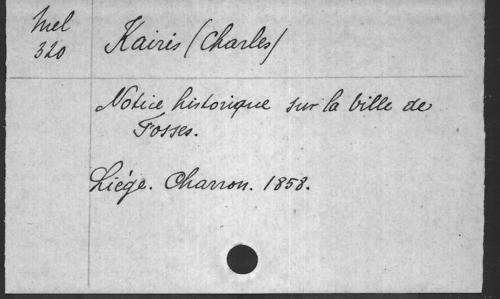 Mel
320
Kairis (Charles)
Notice historique sur la ville de
Fosses.
Liége. Charron. 1858.